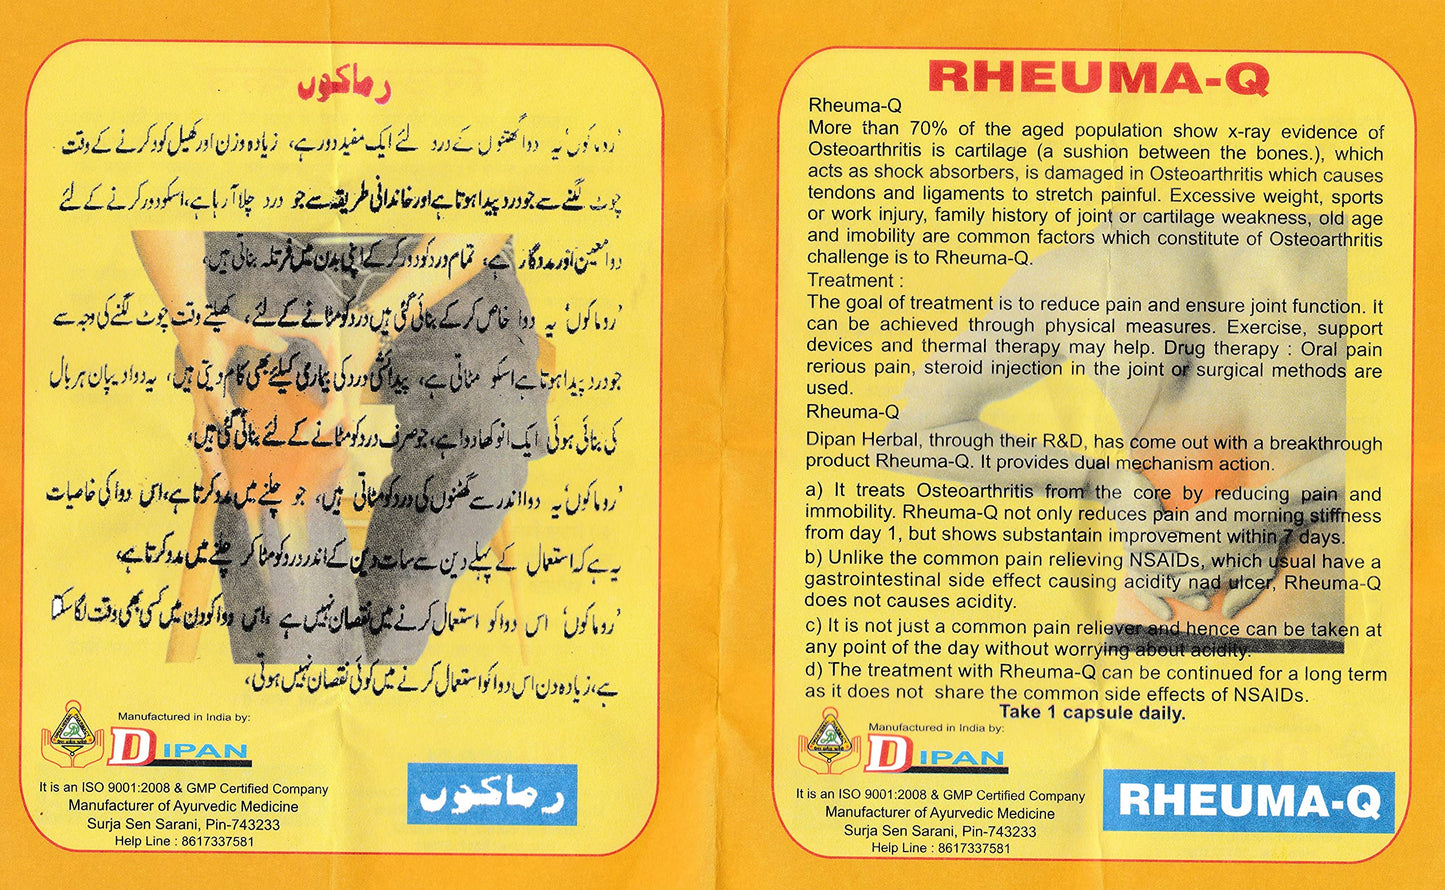 رماکوں
’روماکوں‘ یہ دوا گھٹنوں کے درد لئے ایک مفید دور ہے، زیادہ وزن اور کھیل کود کرنے کے وقت
چوٹ لگنے سے جو درد پیدا ہوتا ہے اور خاندانی طریقہ سے جو درد چلا آرہا ہے، اسکو دور کرنے کے لئے
دوا معین اور مددگار ہے، تمام درد کو دور کر کے اپنی بدن میں فرتلہ بناتی ہیں،
’روماکوں‘ یہ دوا خاص کر کے بنائی گئی ہیں درد کو مٹانے کے لئے، کھیلتے وقت چوٹ لگنے کی وجہ سے
جو درد پیدا ہوتا ہے اسکو مٹاتی ہے، پیدائشی درد کی بیماری کیلئے بھی کام دیتی ہیں، یہ دوا دیپان ہربال
کی بنائی ہوئی ایک انوکھا دوا ہے، جو صرف درد کو مٹانے کے لئے بنائی گئی ہیں،
’روماکوں‘ یہ دوا اندر سے گھٹنوں کی درد کو مٹاتی ہیں، جو چلنے میں مدد کرتا ہے، اس دوا کی خاصیات
یہ ہے کہ استعمال کے پہلے دین سے سات دین کے اندر درد کو مٹا کر چلنے میں مدد کرتا ہے،
’روماکوں‘ اس دوا کو استعمال کرنے میں نقصان نہیں ہے، اس دوا کو دن میں کسی بھی وقت لگا سکتا
ہے، زیادہ دن اس دوا کو استعمال کرنے میں کوئی نقصان نہیں ہوتی،
Manufactured in India by:
DIPAN
It is an ISO 9001:2008 & GMP Certified Company
Manufacturer of Ayurvedic Medicine
Surja Sen Sarani, Pin-743233
Help Line : 8617337581
رماکوں
RHEUMA-Q
Rheuma-Q
More than 70% of the aged population show x-ray evidence of
Osteoarthritis is cartilage (a sushion between the bones.), which
acts as shock absorbers, is damaged in Osteoarthritis which causes
tendons and ligaments to stretch painful. Excessive weight, sports
or work injury, family history of joint or cartilage weakness, old age
and imobility are common factors which constitute of Osteoarthritis
challenge is to Rheuma-Q.
Treatment :
The goal of treatment is to reduce pain and ensure joint function. It
can be achieved through physical measures. Exercise, support
devices and thermal therapy may help. Drug therapy : Oral pain
rerious pain, steroid injection in the joint or surgical methods are
used.
Rheuma-Q
Dipan Herbal, through their R&D, has come out with a breakthrough
product Rheuma-Q. It provides dual mechanism action.
a) It treats Osteoarthritis from the core by reducing pain and
immobility. Rheuma-Q not only reduces pain and morning stiffness
from day 1, but shows substantain improvement within 7 days.
b) Unlike the common pain relieving NSAIDs, which usual have a
gastrointestinal side effect causing acidity nad ulcer, Rheuma-Q
does not causes acidity.
c) It is not just a common pain reliever and hence can be taken at
any point of the day without worrying about acidity.
d) The treatment with Rheuma-Q can be continued for a long term
as it does not share the common side effects of NSAIDs.
Take 1 capsule daily.
Manufactured in India by:
DIPAN
It is an ISO 9001:2008 & GMP Certified Company
Manufacturer of Ayurvedic Medicine
Surja Sen Sarani, Pin-743233
Help Line : 8617337581
RHEUMA-Q